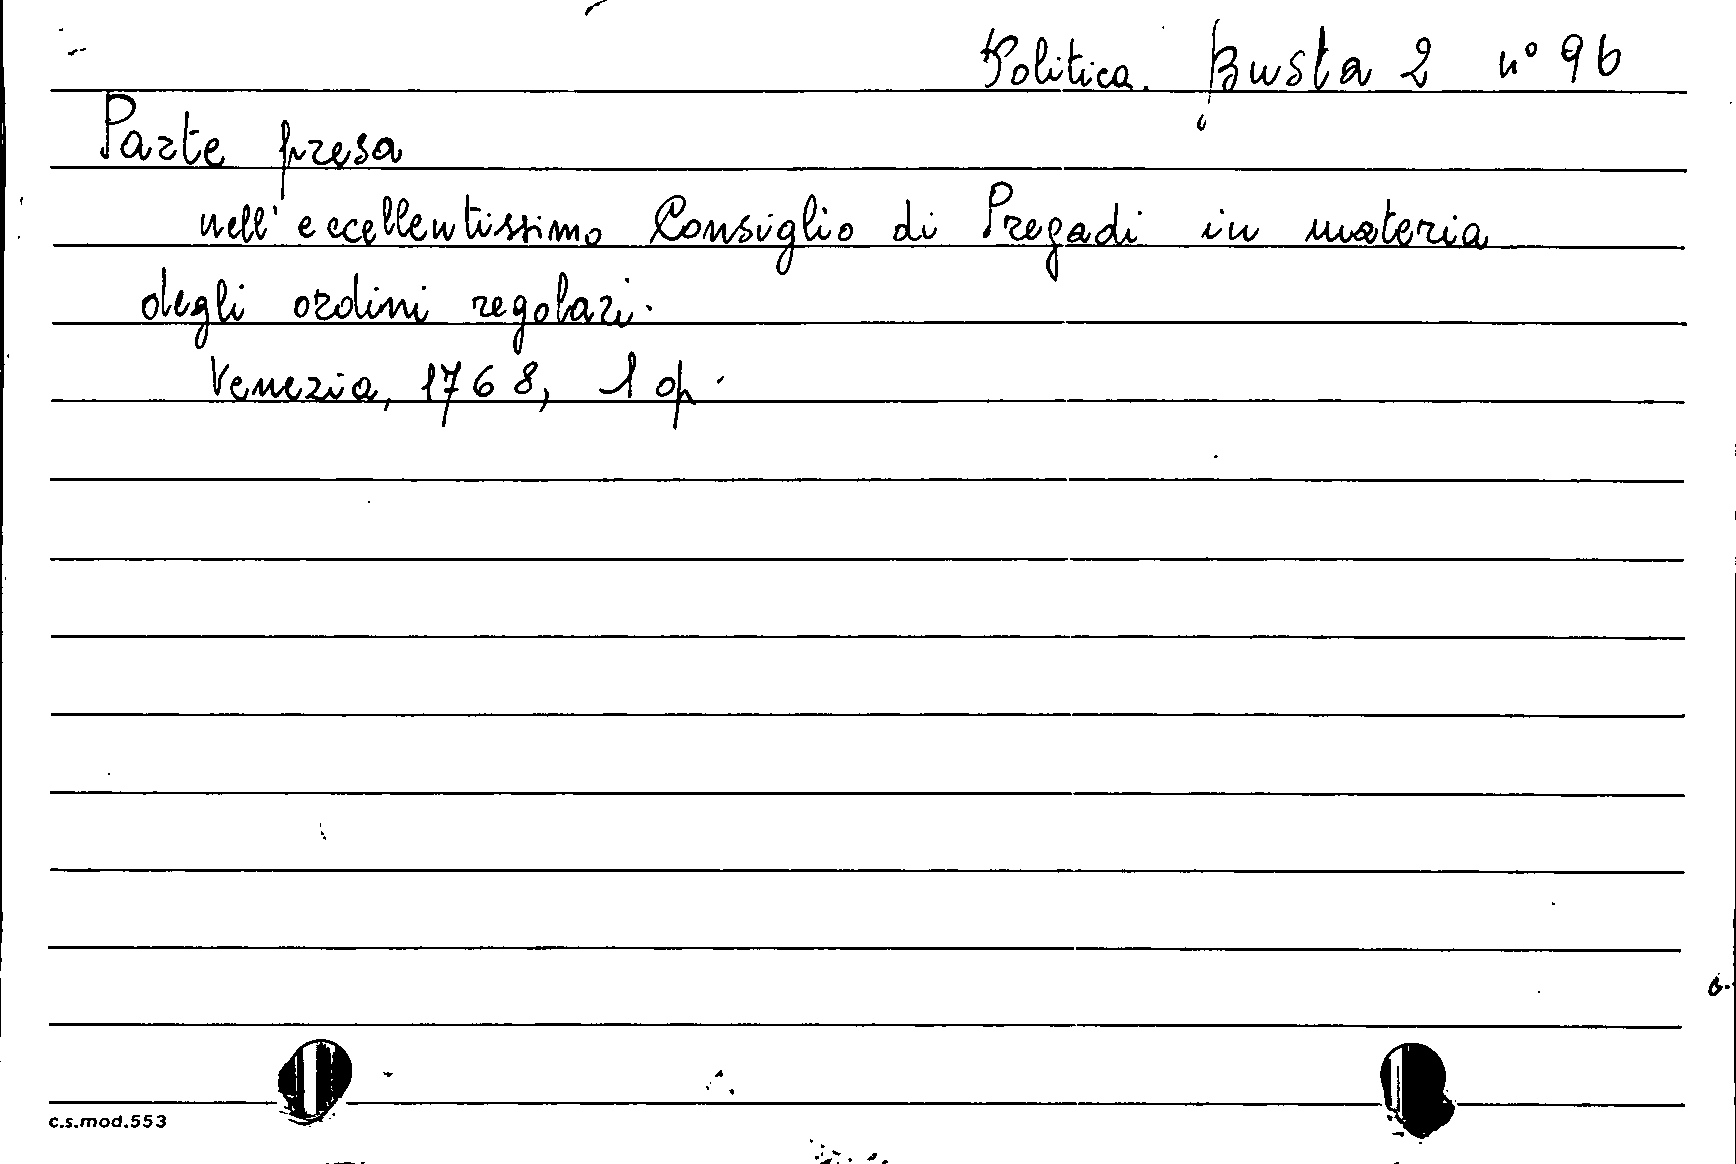 Politica. Busta 2 n° 96
Parte presa
nell'eccellentissimo Consiglio di Pregadi in materia
degli ordini regolari.
Venezia, 1768, 1 op.
c.s.mod.553